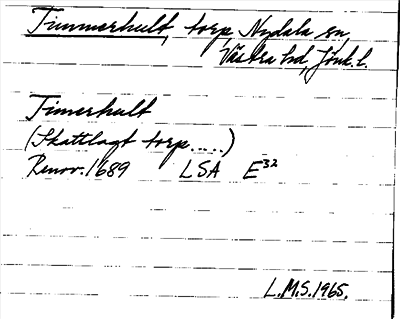 Timmerhult, torp, Nydala sn,
Västra hd, Jönk. l.
Timerhult
(Skattlagt torp.....)
Renov. 1689 LSA E32
L.M.S. 1965.